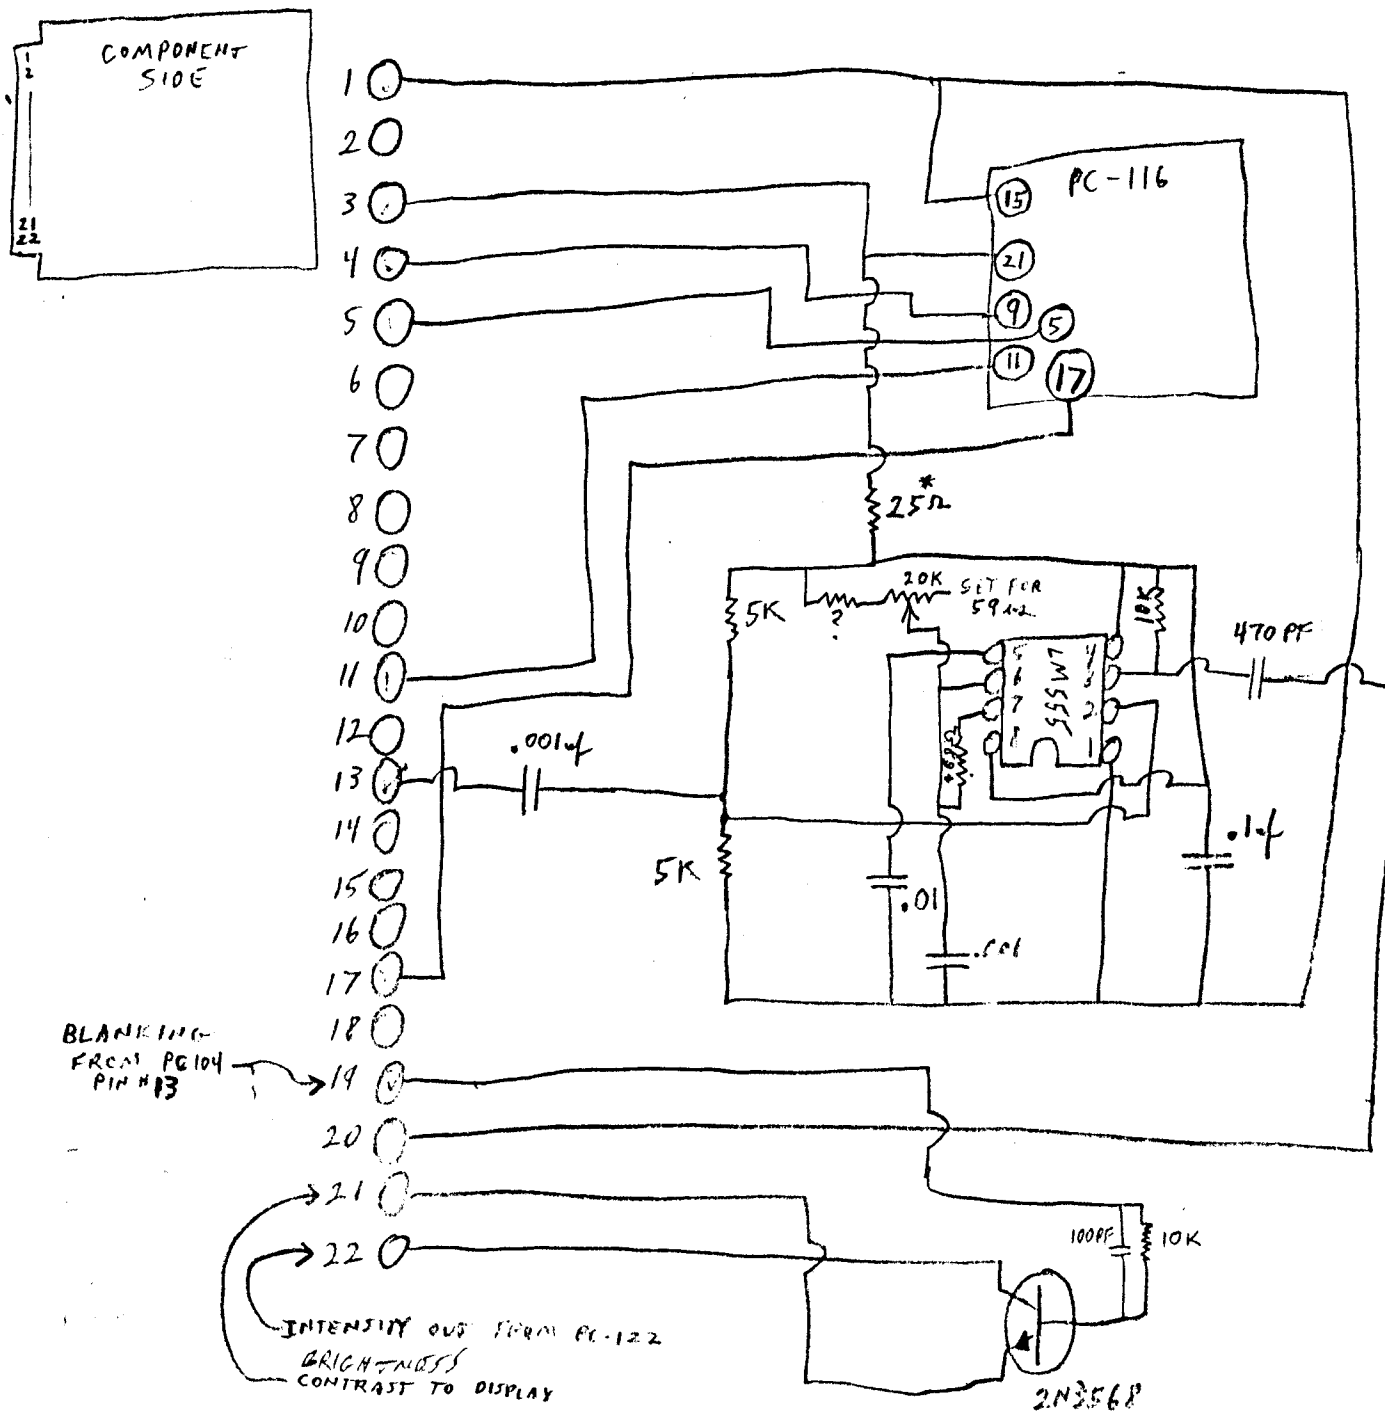 COMPONENT
SIDE
1
2
21
22
1
2
3
4
5
6
7
8
9
10
11
12
13
14
15
16
17
18
19
20
21
22
PC-116
15
21
9
5
11
17
*
25Ω
5K
?
20K
SET FOR
10K
470 PF
LM555
5
6
7
8
4
3
2
1
.001uf
5K
.01
.001
.1uf
BLANKING
FROM PC104
PIN #13
100PF
10K
INTENSITY OUT FROM PC-122
BRIGHTNESS
CONTRAST TO DISPLAY
2N3568